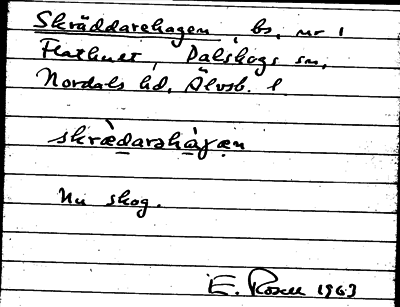 Skräddarehagen, bs. nr 1
Dalskogs sn,
Nordals hd, Älvsb. l.
skrædarəhàgæn
Nu skog.
E. Rosell 1963